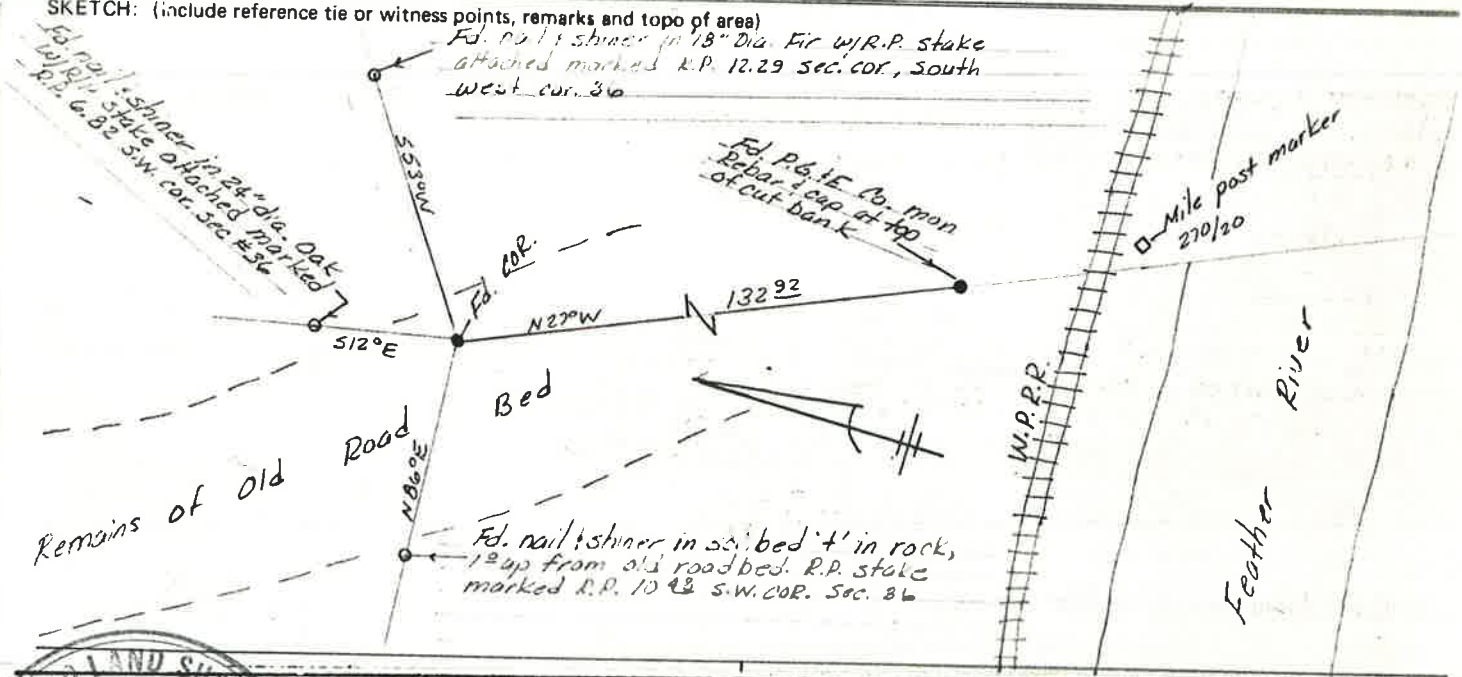 SKETCH: (include reference tie or witness points, remarks and topo of area)
Fd. nail & shiner in 18" Dia. Fir w/R.P. stake
attached marked R.P. 12.29 sec. cor., south
west cor. 36
Fd. nail & shiner in 24" dia. Oak
w/R.P. stake attached marked
R.P. 6.82 S.W. cor. sec #36
S53°W
Fd. P.G. & E. Co. mon
Rebar & cap at top
of cut bank
Mile post marker
270/20
Fd. COR.
S12°E
N27°W
132 92
W.P.R.R.
Feather River
Remains of Old Road Bed
N86°E
Fd. nail & shiner in scribed '+' in rock,
up from old roadbed. R.P. stake
marked R.P. 10 S.W. COR. Sec. 36
LAND